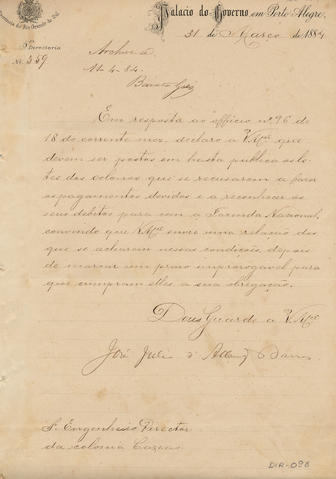 Palacio do Governo em Porto Alegre,
31 de Março de 1884
Directoria
N. 559
Archive-se
14-4-84.
Em resposta ao officio nº 96 de
18 do corrente mez, declaro a Vmcê que
devem ser postos em hasta publica os lo-
tes dos colonos que se recusarem a fazer
os pagamentos devidos e a reconhecer os
seus debitos para com a Fazenda Nacional,
convindo que Vmcê envie uma relação dos
que se acharem nessas condições, depois
de marcar um praso improrogavel para
que cumpram elles a sua obrigação.
Deus Guarde a Vmcê
José Julio d' Albuqe Barros
Sr Engenheiro Director
da colonia Caxias
DIR-098